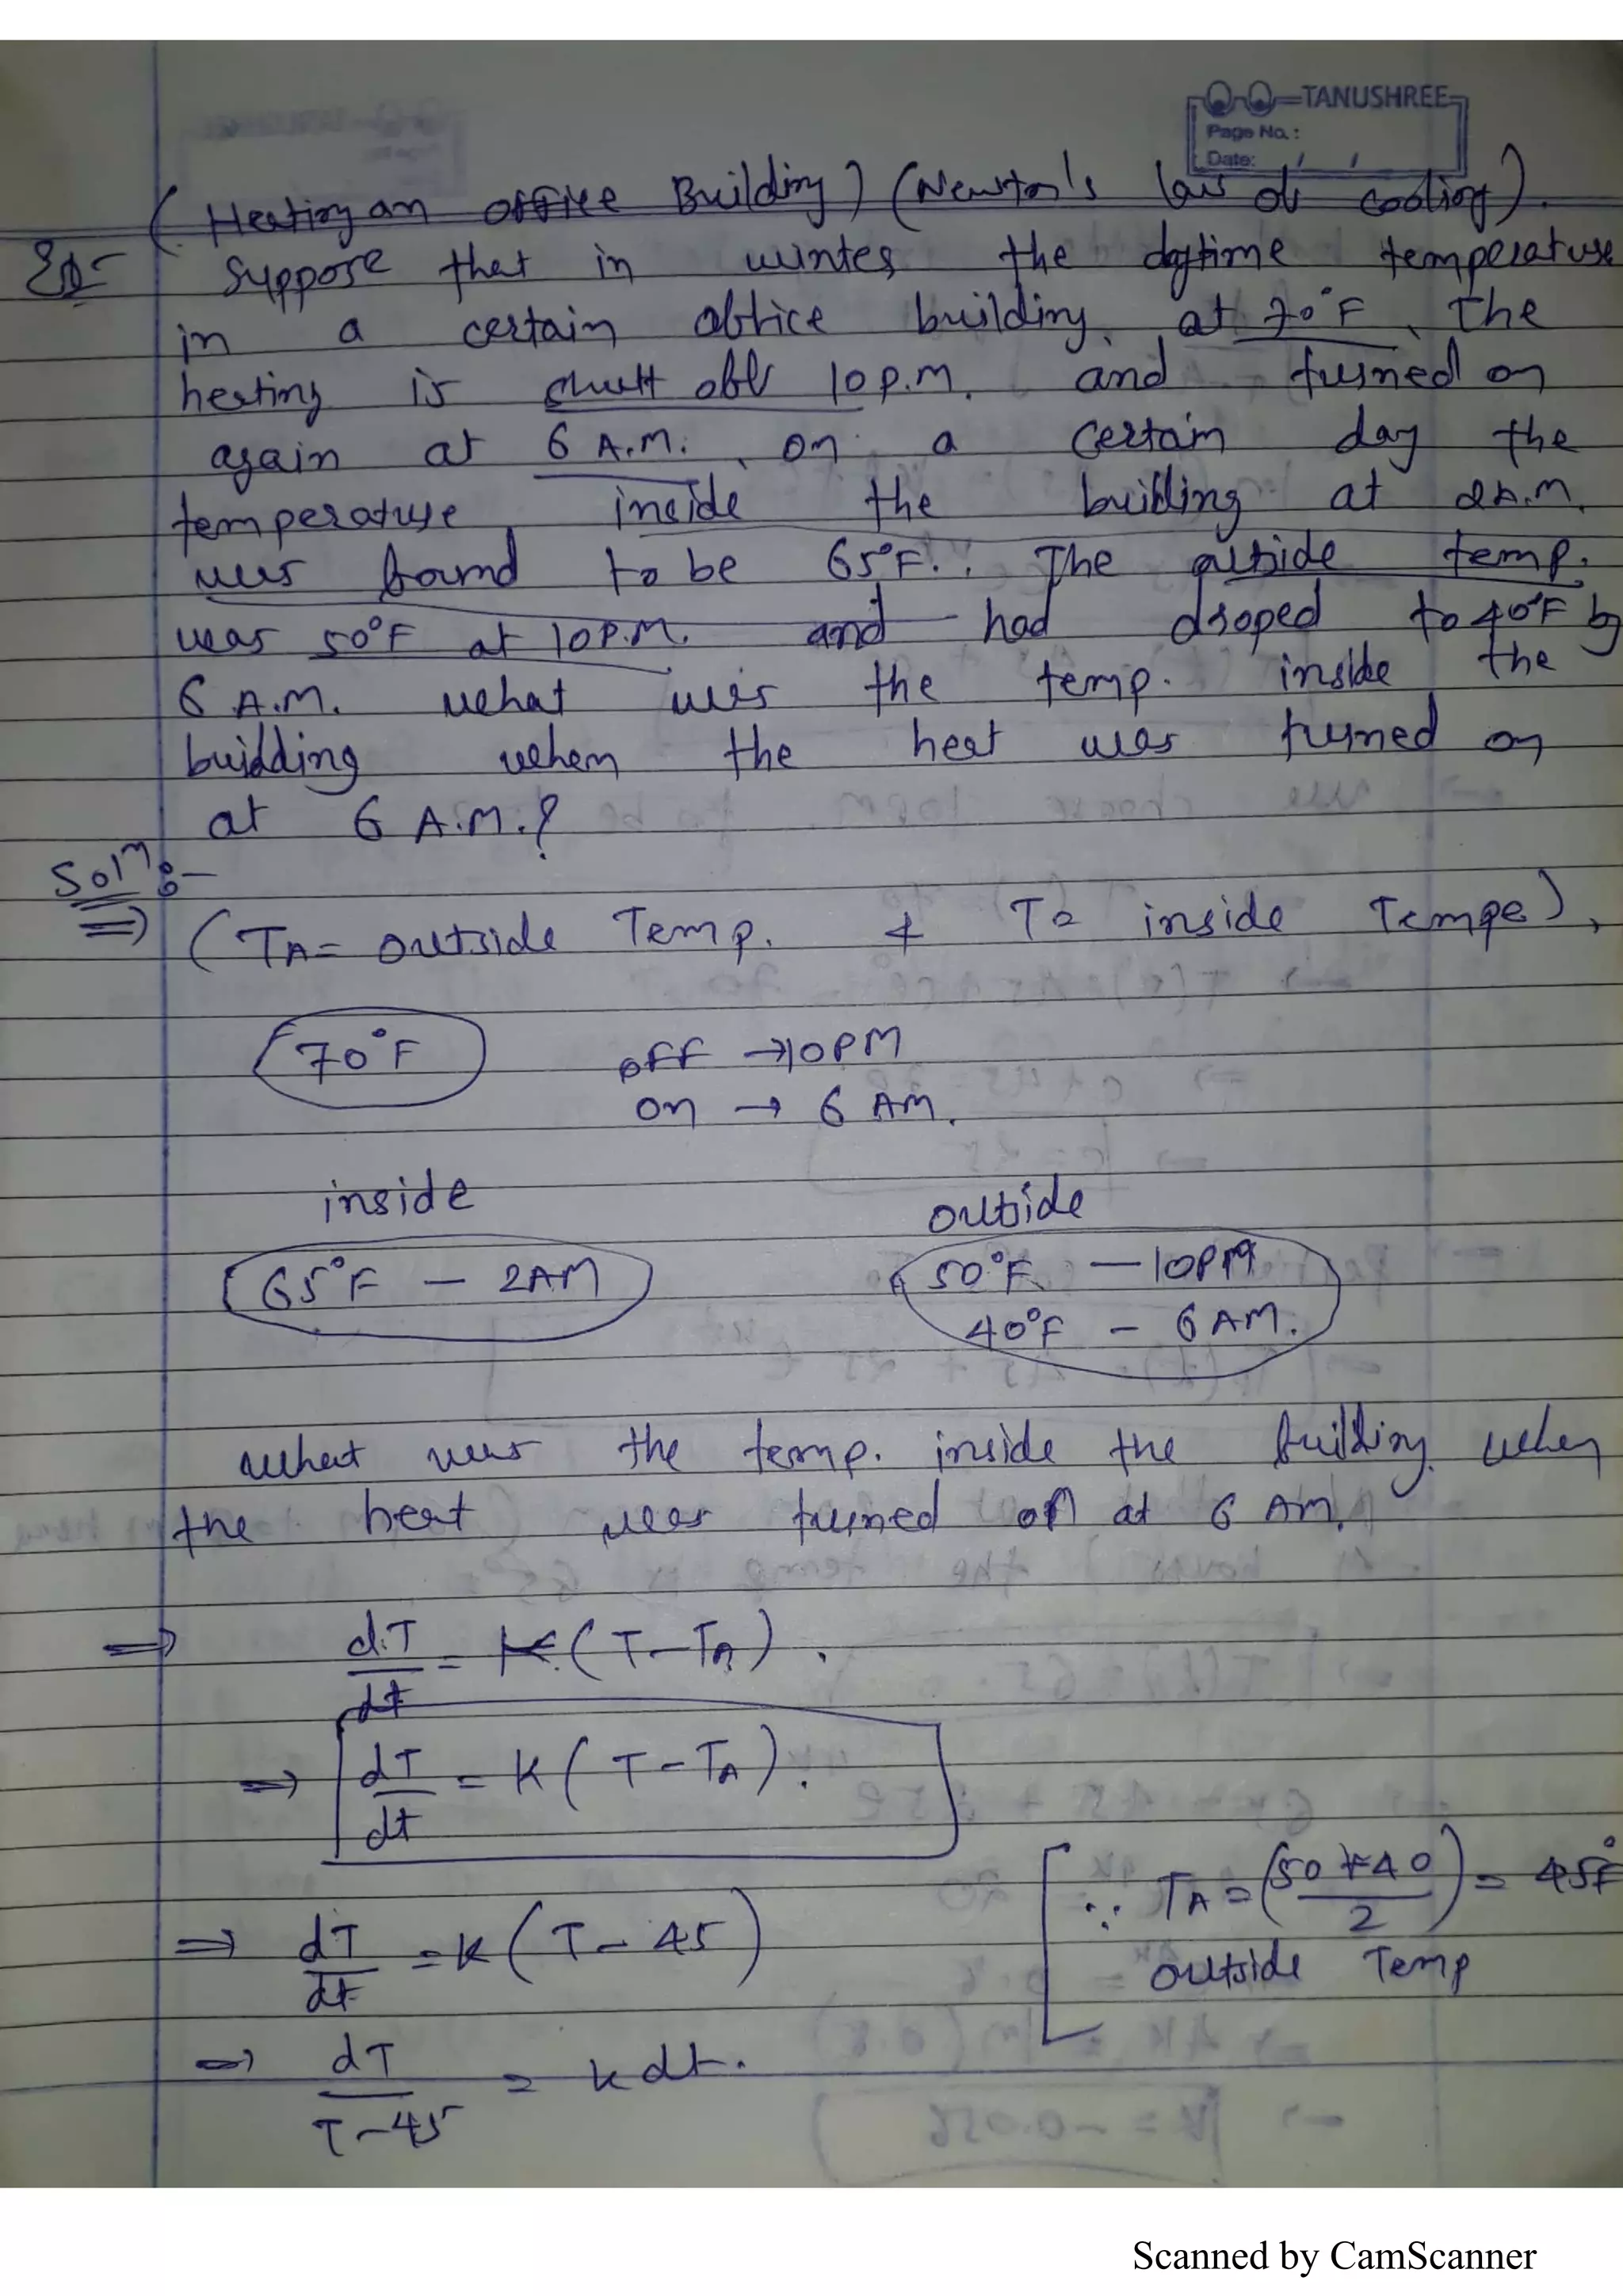 TANUSHREE
Page No.:
Date: / /
(Heating an office Building) (Newton's law of cooling).
Suppose that in winter the daytime temperature
in a certain office building at 70°F. The
heating is shutt off 10 P.M. and turned on
again at 6 A.M. on a certain day the
temperature inside the building at 2 A.M.
was found to be 65°F. The outside temp.
was 50°F at 10 P.M. and had droped to 40°F by
6 A.M. what was the temp. inside the
building when the heat was turned on
at 6 A.M.?
Solⁿ:-
⇒ (TA = outside Temp. & T = inside Tempe),
70°F off → 10PM
on → 6 AM.
inside outside
65°F - 2AM 50°F - 10PM
40°F - 6 AM.
what was the temp. inside the building when
the heat was turned on at 6 AM.
⇒ dT/dt = K (T-TA).
⇒ dT/dt = K (T-TA).
⇒ dT/dt = K (T-45) [∵ TA = (50+40/2) = 45°F
outside Temp
⇒ dT/T-45 = k dt.
Scanned by CamScanner